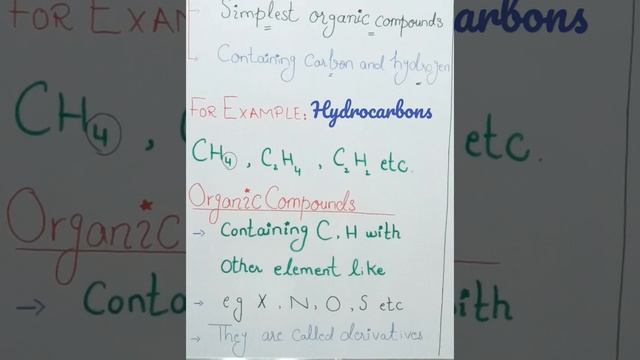 Simplest organic compounds
Containing Carbon and hydrogen
FOR EXAMPLE: Hydrocarbons
CH4, C2H4, C2H2 etc.
ORGANIC COMPOUNDS
→ Containing C, H with
Other element like
→ eg X, N, O, S etc
→ They are called derivatives